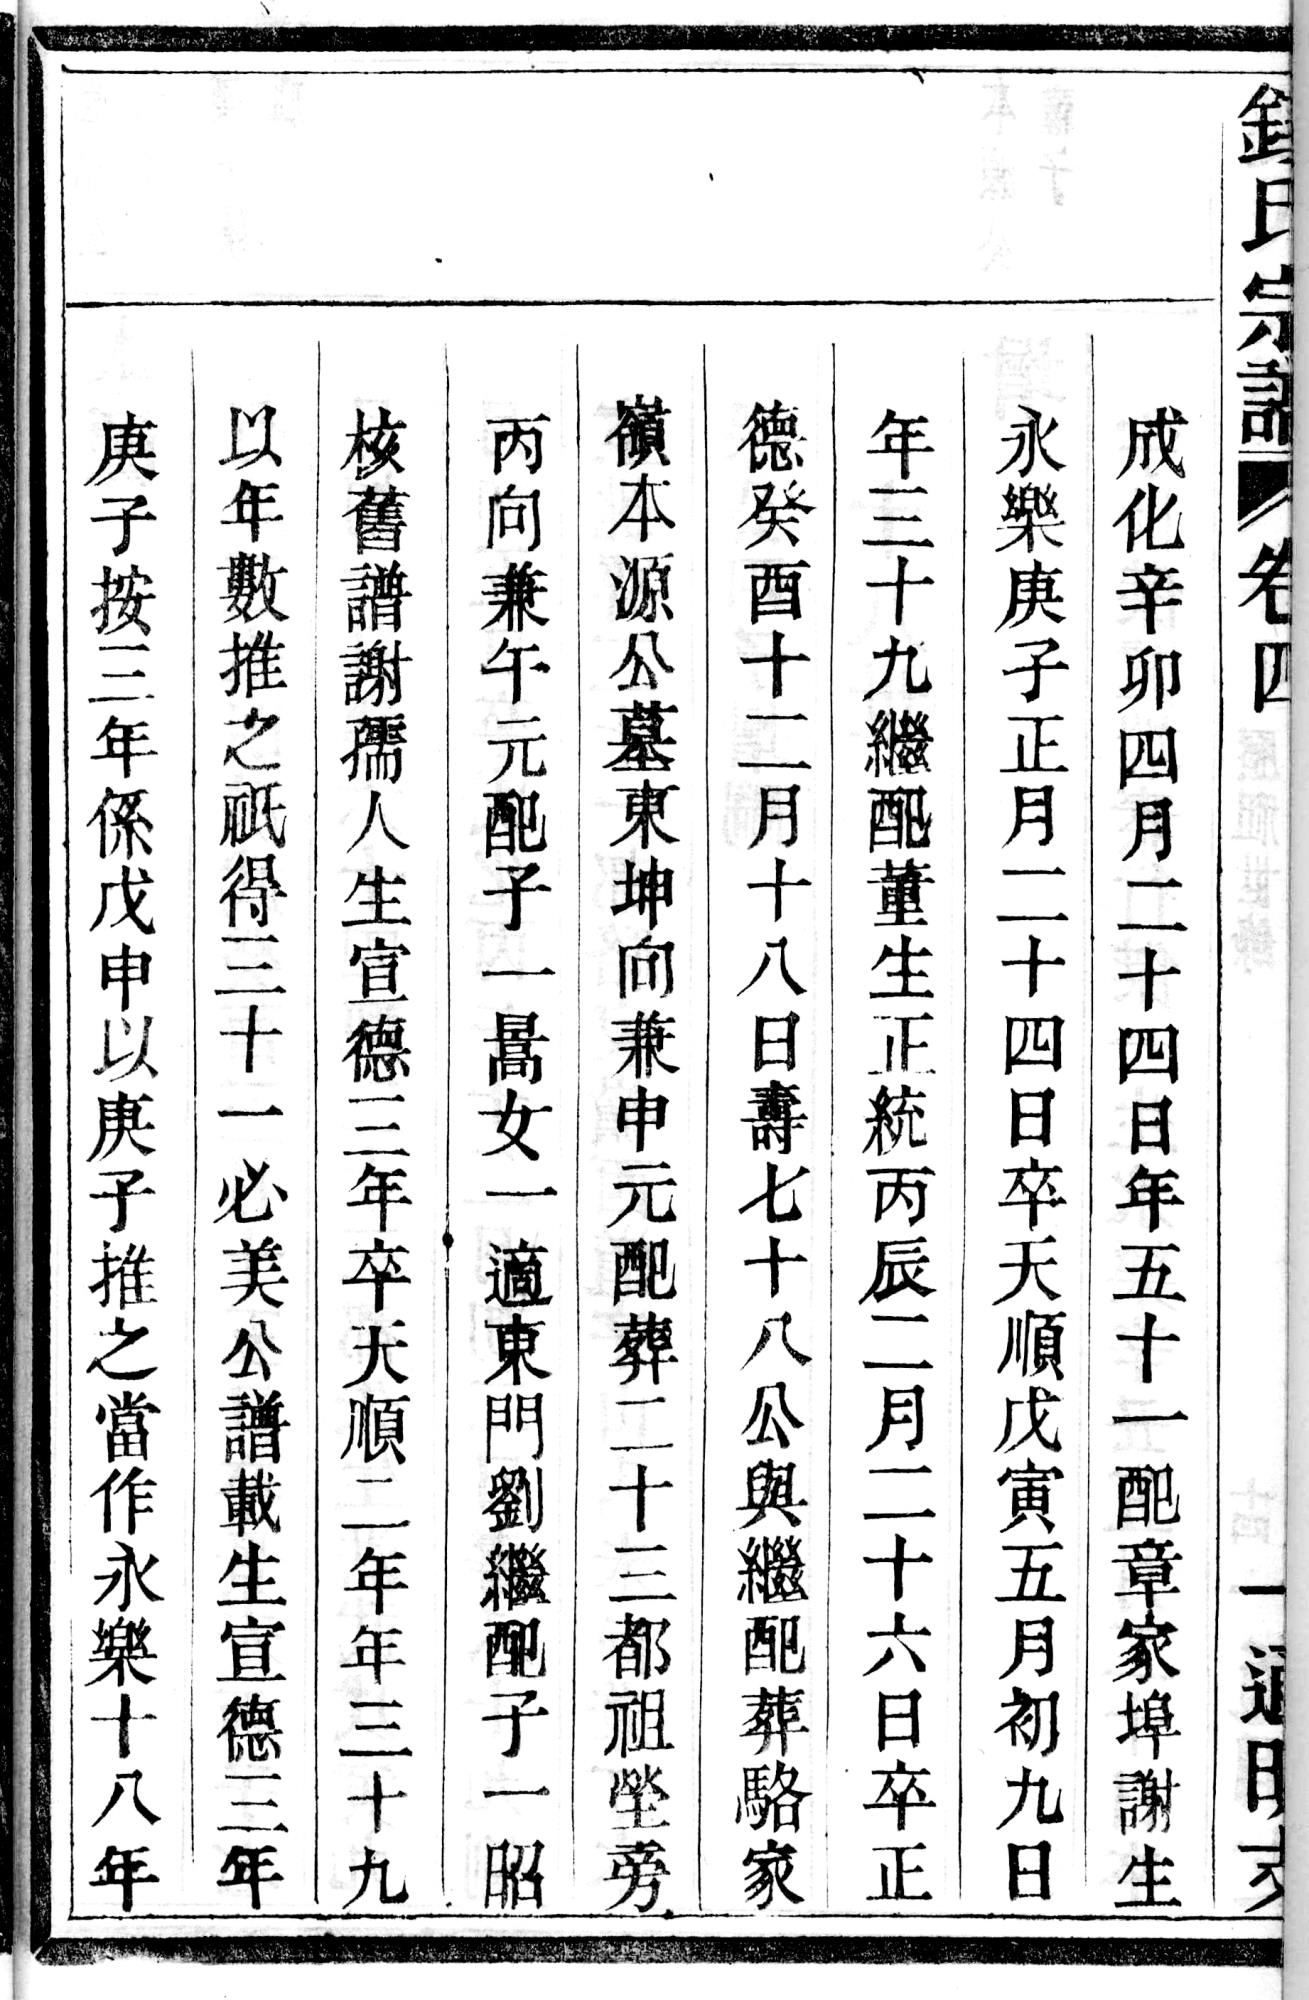 氏宗譜 卷四 一
成化辛卯四月二十四日年五十一配章家埠謝生
永樂庚子正月二十四日卒天順戊寅五月初九日
年三十九繼配董生正統丙辰二月二十六日卒正
德癸酉十二月十八日壽七十八公與繼配葬駱家
嶺本源公墓東坤向兼申元配葬二十三都祖塋旁
丙向兼午元配子一暠女一適東門劉繼配子一昭
核舊譜謝孺人生宣德三年卒天順二年年三十九
以年數推之祇得三十一必美公譜載生宣德三年
庚子按三年係戊申以庚子推之當作永樂十八年